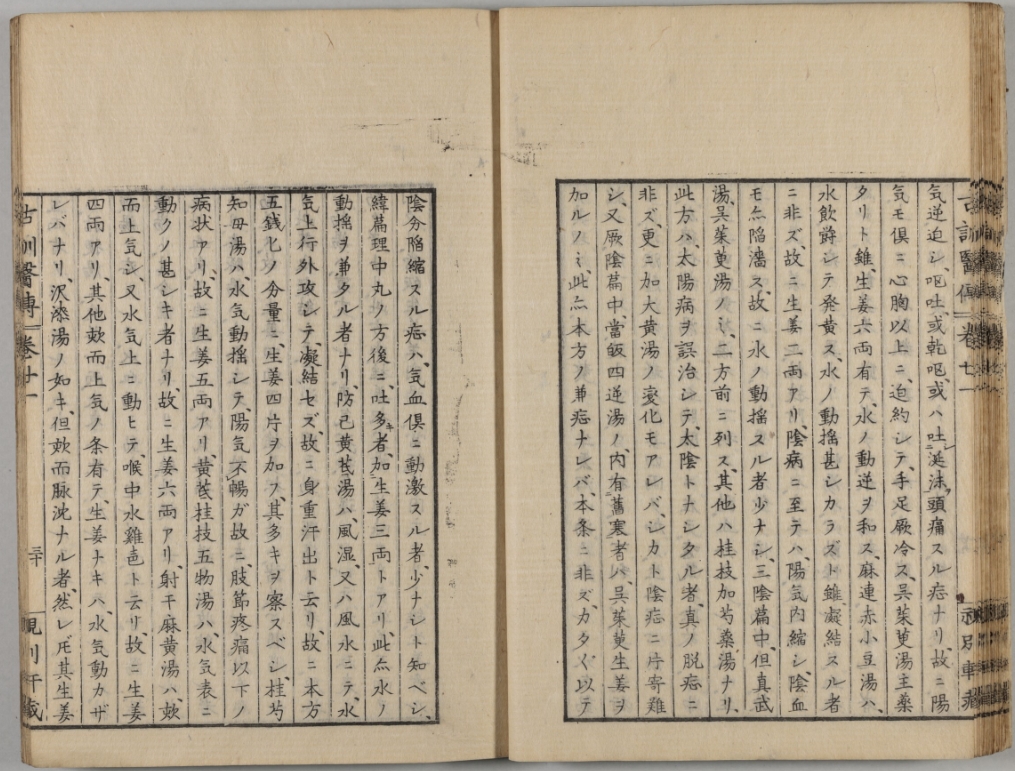 気逆迫シ、呕吐、或乾呕、或ハ吐涎沫、頭痛スル㾽ナリ、故ニ陽
気モ倶ニ心胸以上ニ、迫約シテ、手足厥冷ス、吴茱萸湯主薬
タリト雖、生姜六両有テ、水ノ動逆ヲ和ス、麻連赤小豆湯ハ、
水飲欝シテ発黄ス、水ノ動揺甚シカラズト雖、凝結スル者
ニ非ズ、故ニ生姜二両アリ、陰病ニ至テハ、陽気内縮シ、陰血
モ亦陥濇ス、故ニ水ノ動揺スル者少ナシ、三陰篇中、但真武
湯、吴茱萸湯ノミ、二方前ニ列ス、其他ハ桂枝加芍薬湯ナリ、
此方ハ、太陽病ヲ誤治シテ、太陰トナシタル者、真ノ脱㾽ニ
非ズ、更ニ加大黄湯ノ変化モアレバ、シカト陰㾽ニ片寄難
シ、又厥陰篇中、當皈四逆湯ノ、内有舊寒者ハ、吴茱萸生姜ヲ
加ルノミ、此亦本方ノ兼㾽ナレバ、本条ニ非ズ、カタ〱以テ
陰分陥縮スル㾽ハ、気血倶ニ動激スル者、少ナシト知ベシ、
緯篇理中丸ノ方後ニ、吐多者、加生姜三両トアリ、此亦水ノ
動揺ヲ兼タル者ナリ、防己黄芪湯ハ、風湿、又ハ風水ニテ、水
気上行外攻シテ、凝結セズ、故ニ身重汗出ト云リ、故ニ本方
五銭匕ノ分量ニ、生姜四片ヲ加フ、其多キヲ察スベシ、桂芍
知母湯ハ、水気動揺シテ、陽気不暢ガ故ニ、肢節疼痛以下ノ
病状アリ、故ニ生姜五両アリ、黄芪桂枝五物湯ハ、水気表ニ
動クノ甚シキ者ナリ、故ニ生姜六両アリ、射干麻黄湯ハ、欬
而上気シ、又水気上ニ動ヒテ、喉中水雞声ト云リ、故ニ生姜
四両アリ、其他欬而上気ノ条有テ、生姜ナキハ、水気動カザ
レバナリ、沢漆湯ノ如キ、但欬而脉沈ナル者、然レ𪜈其生姜
古訓醫傳 巻廿一
三十